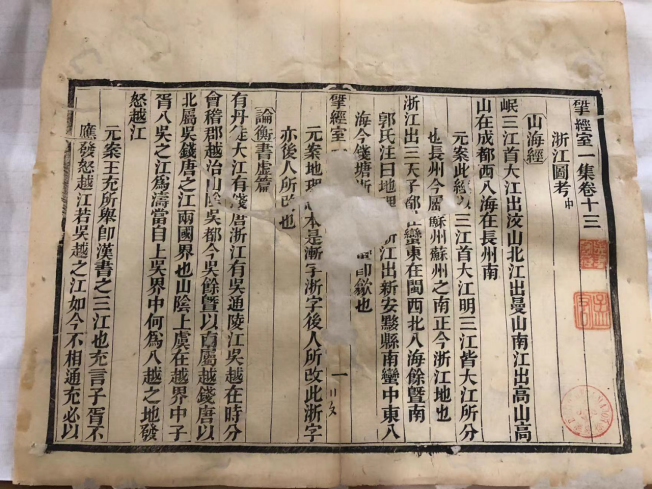 揅經室一集卷十三
浙江圖考中
山海經
岷三江首大江出汶山北江出曼山南江出高山高
山在成都西入海在長州南
元案此經以三江首大江明三江皆大江所分
也長州今屬蘇州蘇州之南正今浙江地也
浙江出三天子都 蠻東在閩西北入海餘暨南
郭氏注曰地理 浙江出新安黟縣南蠻中東入
海今錢塘浙 卽歙也
揅經室一 一
元案地理 本是漸字浙字後人所改此浙字
亦後人所改也
論衡書虛篇
有丹徒大江有錢唐浙江有吳通陵江吳越在時分
會稽郡越治山陰吳都今吳餘暨以南屬越錢唐以
北屬吳錢唐之江兩國界也山陰上虞在越界中子
胥入吳之江爲濤當自上吳界中何爲入越之地發
怒越江
元案王充所舉卽漢書之三江也充言子胥不
應發怒越江若吳越之江如今不相通充必以